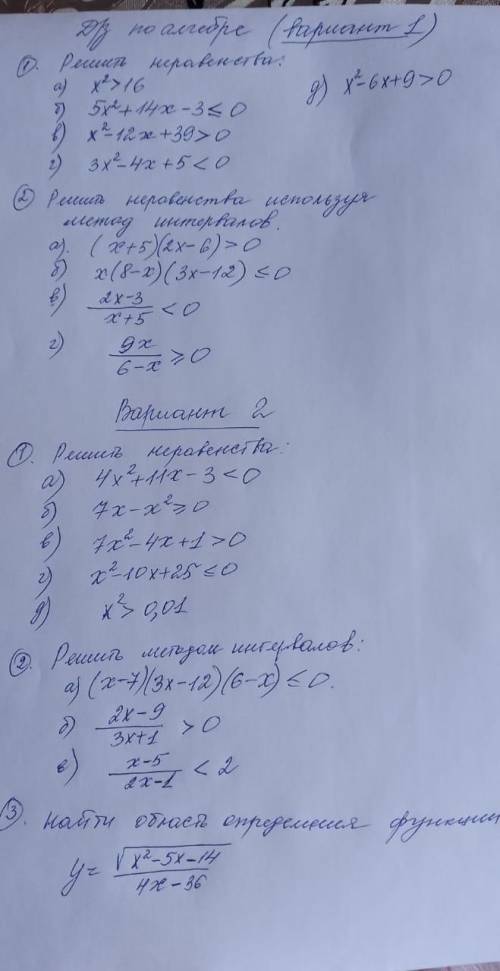 ДЗ по алгебре (вариант 1)
①. Решить неравенства:
а) x²>16
д) x²-6x+9>0
б) 5x²+14x-3≤0
в) x²-12x+39>0
г) 3x²-4x+5<0
② Решить неравенства используя
метод интервалов.
а). (x+5)(2x-6)>0
б) x(8-x)(3x-12)≤0
в) \frac{2x-3}{x+5}<0
г) \frac{9x}{6-x}≥0
Вариант 2
①. Решить неравенства:
а) 4x²+11x-3<0
б) 7x-x²≥0
в) 7x²-4x+1>0
г) x²-10x+25≤0
д) x²>0,01
②. Решить методом интервалов:
а) (x-7)(3x-12)(6-x)≤0.
б) \frac{2x-9}{3x+1}>0
в) \frac{x-5}{2x-1}<2
③. Найти область определения функции
y=\frac{\sqrt{x²-5x-14}}{4x-36}